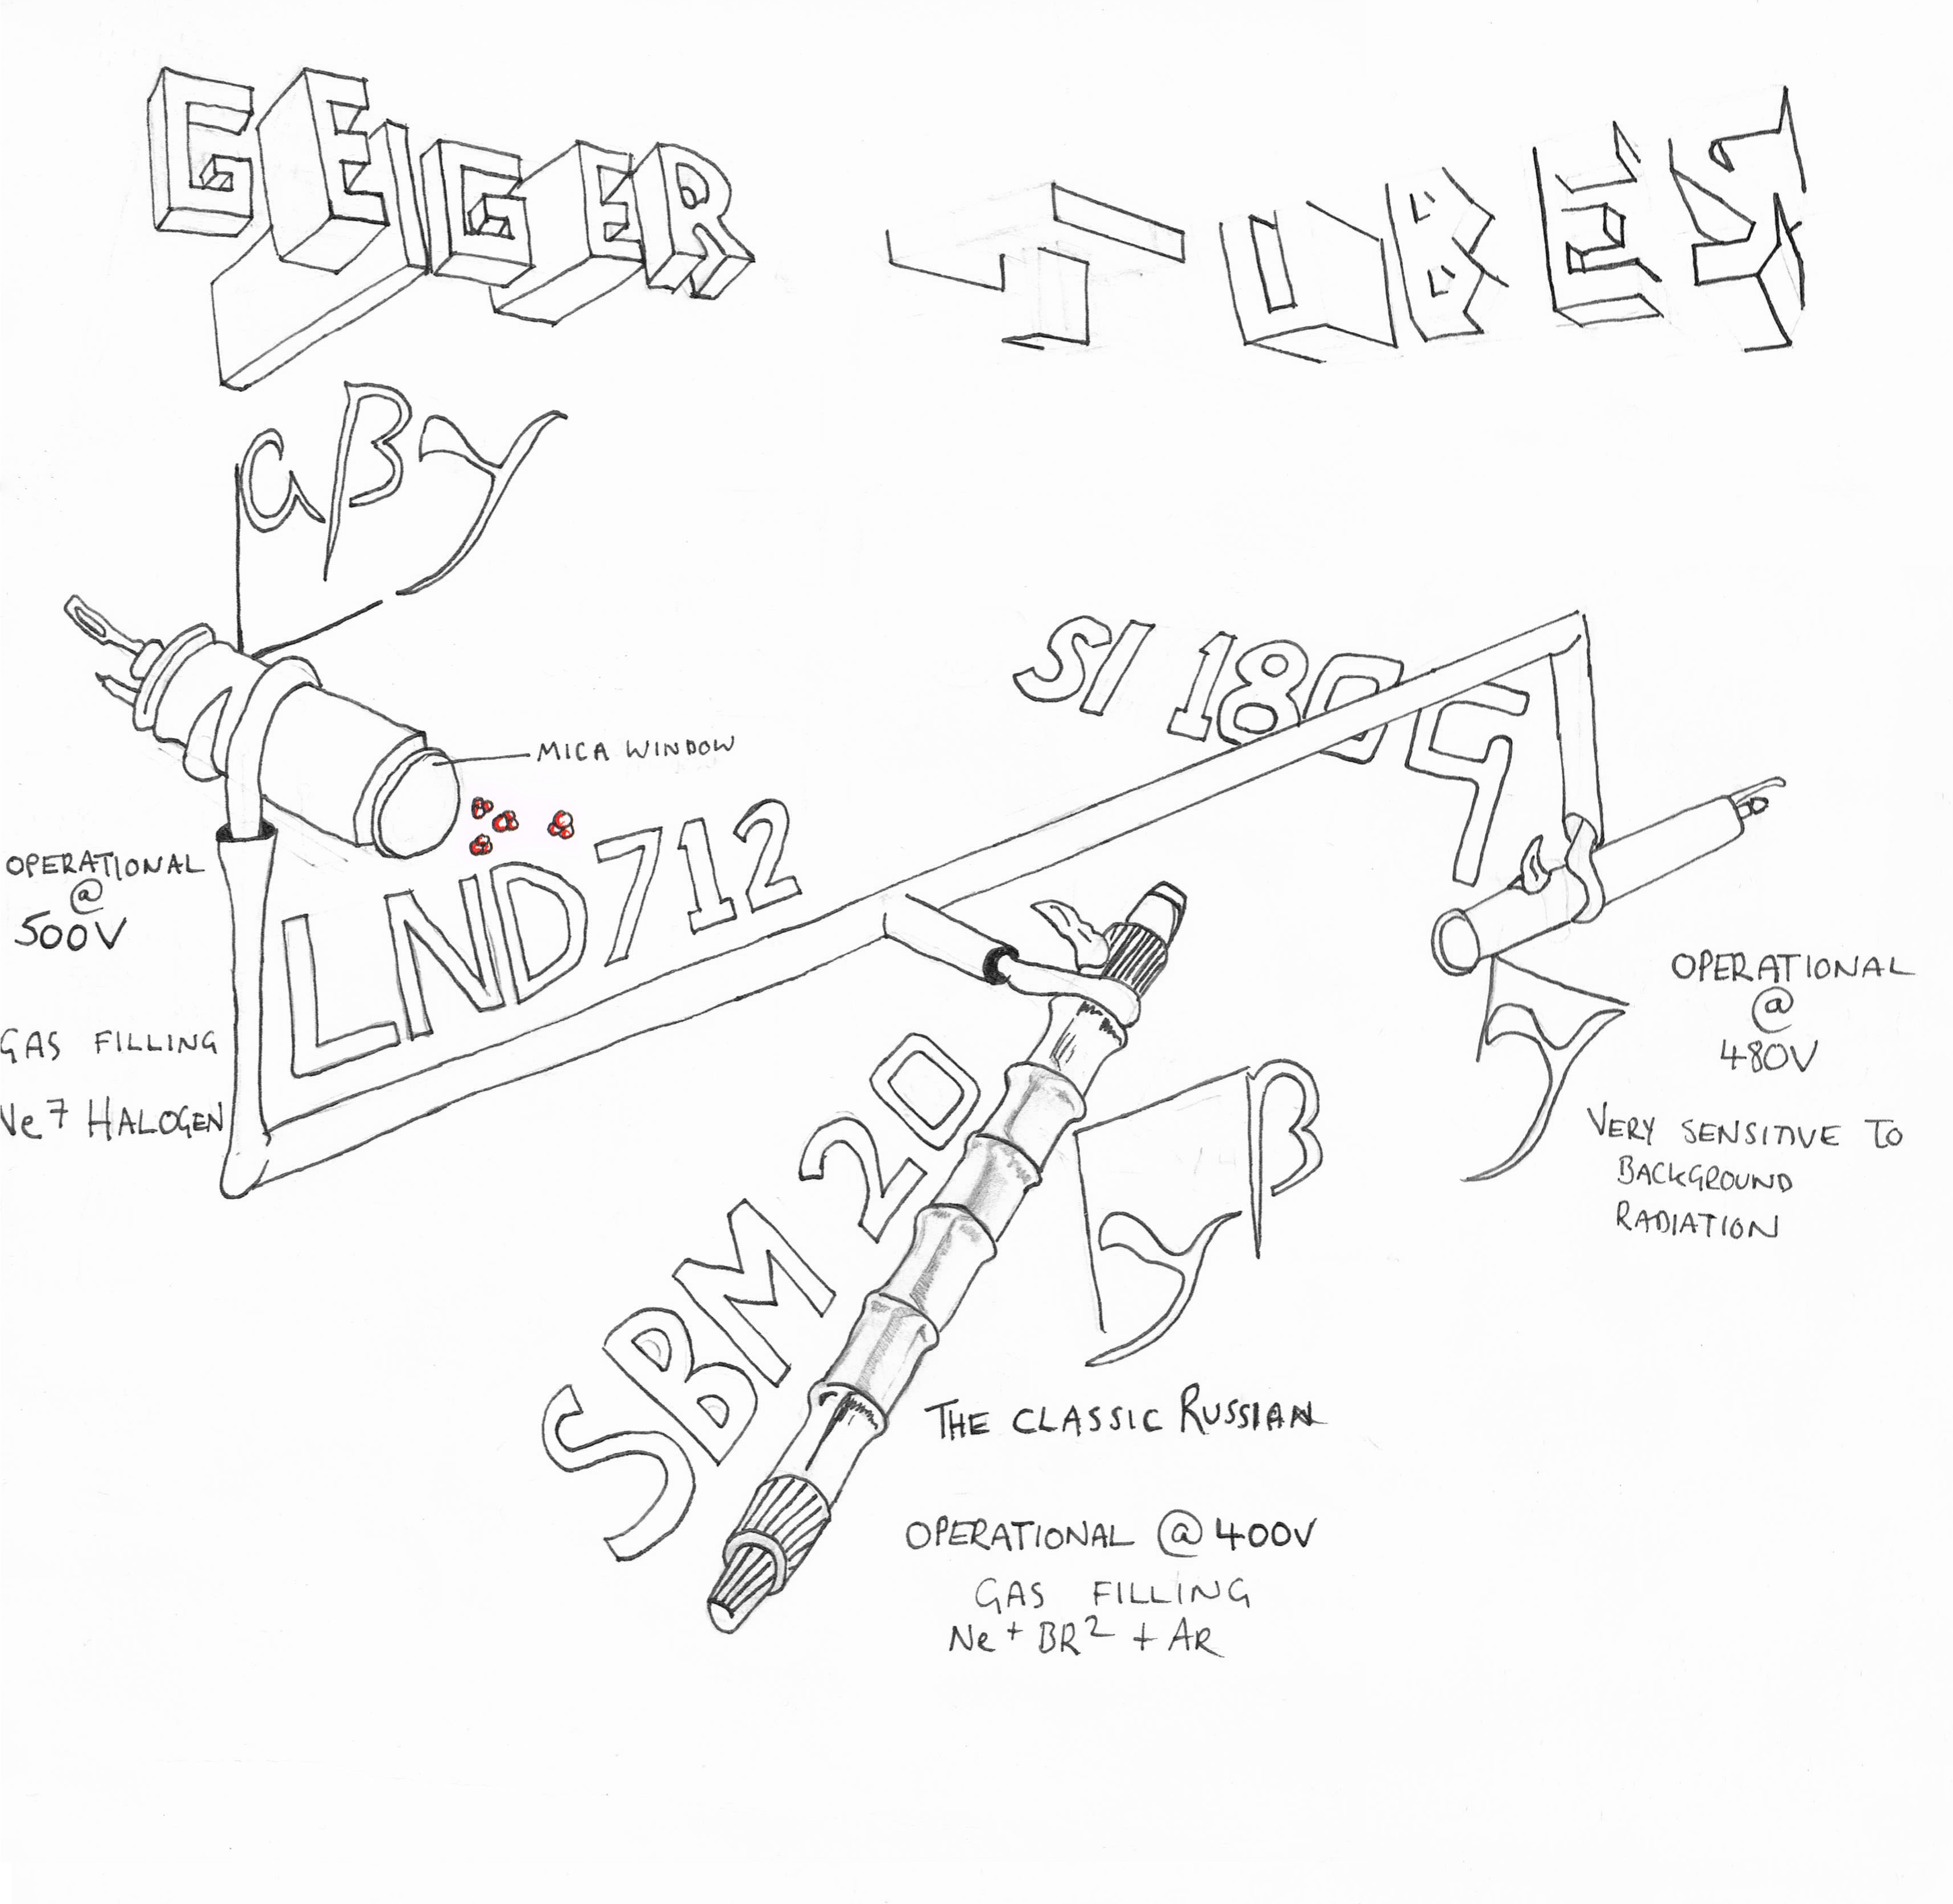 GEIGER TUBES
αβγ
MICA WINDOW
OPERATIONAL
@
500V
GAS FILLING
Ne 7 HALOGEN
LND 712
SI 180G
γ
OPERATIONAL
@
480V
VERY SENSITIVE TO
BACKGROUND
RADIATION
SBM 20
γβ
THE CLASSIC RUSSIAN
OPERATIONAL @ 400V
GAS FILLING
Ne + BR² + AR